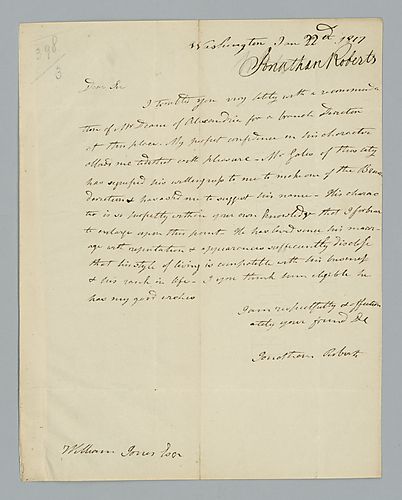 398
3
Washington Jan 22d 1817
Jonathan Roberts
Dear Sir
I troubled you very lately with a recommenda
tion of Mr Dean of Alexandria for a branch Direction
at this place. My perfect confidence in his character
made me do that with pleasure - Mr Gales of this city
has signified his willingness to me to make one of the Branch
directors & has asked me to suggest his name - His charac
ter is so perfectly within your own knowledge that I forbear
to enlarge upon this point. He has lived since his marri
age with reputation & appearances sufficiently disclose
that his style of living is compatible with his business
& his rank in life - If you think him eligible he
has my good wishes
I am respectfully & affection
ately your friend &c
Jonathan Roberts
William Jones Esqr